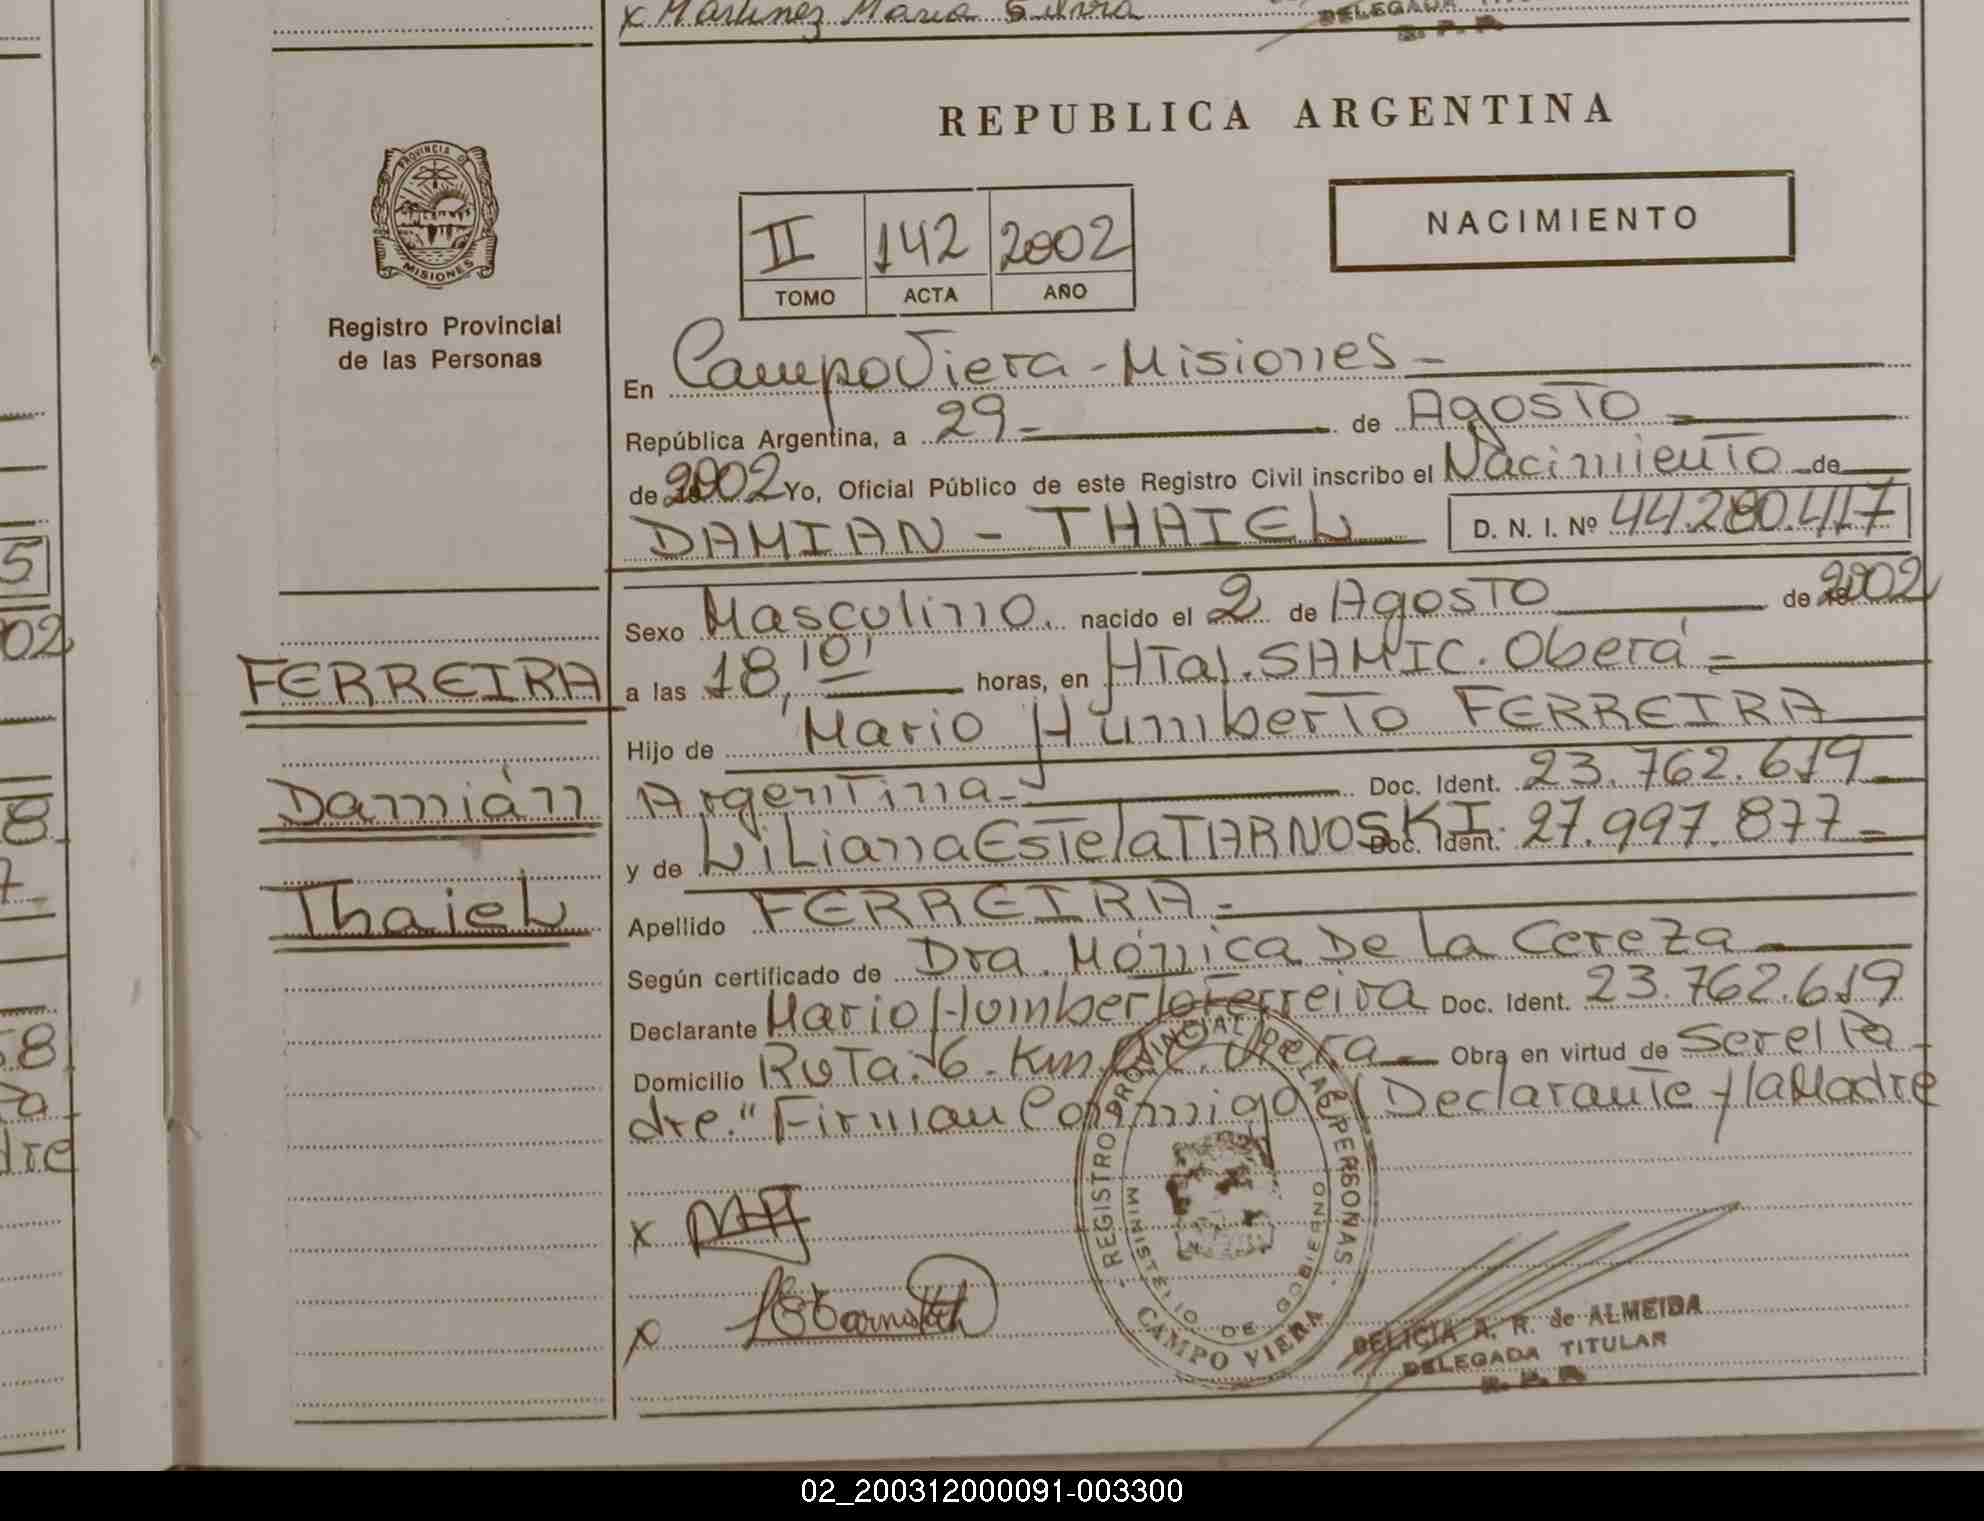 x Martinez Maria Silvia
DELEGADA
PROVINCIA DE
MISIONES
Registro Provincial
de las Personas
REPUBLICA ARGENTINA
II 142 2002
TOMO ACTA AÑO
NACIMIENTO
En Campo Viera - Misiones -
República Argentina, a 29 - de Agosto -
de 2002 Yo, Oficial Público de este Registro Civil inscribo el Nacimiento de
DAMIAN - THAIEL D. N. I. Nº 44.280.417
Sexo Masculino. nacido el 2 de Agosto de 2002
a las 18,10' horas, en Htal. SAMIC. Oberá -
Hijo de Mario Humberto FERREIRA
Argentina - Doc. Ident. 23.762.619
y de Liliana Estela TARNOSKI. Doc. Ident. 27.997.877 -
Apellido FERREIRA -
Según certificado de Dra. Mónica De La Cereza
Declarante Mario Humberto Ferreira Doc. Ident. 23.762.619
Domicilio Ruta: 6. Km. C. Viera Obra en virtud de Ser el Pa-
dre." Firman Conmigo, Declarante y la Madre
FERREIRA
Damián
Thaiel
x
x
REGISTRO PROVINCIAL DE LAS PERSONAS
MINISTERIO DE GOBIERNO
CAMPO VIERA
DELICIA A. R. de ALMEIDA
DELEGADA TITULAR
5
02
8
7
8
dre
02_200312000091-003300